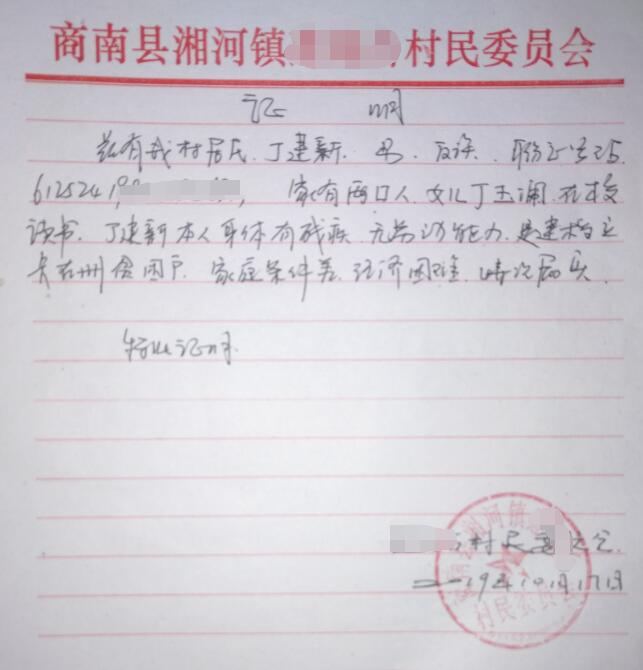 商南县湘河镇 村民委员会
证 明
兹有我村居民、丁建新、男、汉族、身份证号码
612524 , 家有两口人、女儿丁玉澜、在校
读书、丁建新本人身体有残疾、无劳动能力、是建档立
卡在册贫困户、家庭条件差、经济困难、情况属实、
特此证明
村民委员会
二〇一九年10月17日
商南县湘河镇
村民委员会